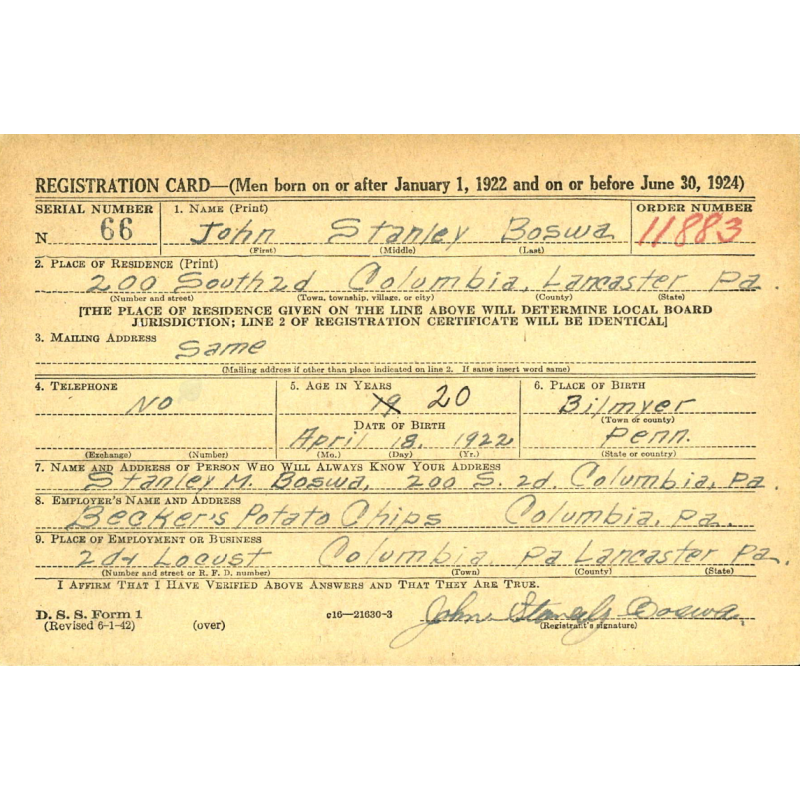 REGISTRATION CARD—(Men born on or after January 1, 1922 and on or before June 30, 1924)
SERIAL NUMBER 1. NAME (Print) ORDER NUMBER
N 66 John Stanley Boswa 11883
(First) (Middle) (Last)
2. PLACE OF RESIDENCE (Print)
200 South 2d Columbia, Lancaster Pa.
(Number and street) (Town, township, village, or city) (County) (State)
[THE PLACE OF RESIDENCE GIVEN ON THE LINE ABOVE WILL DETERMINE LOCAL BOARD
JURISDICTION; LINE 2 OF REGISTRATION CERTIFICATE WILL BE IDENTICAL]
3. MAILING ADDRESS
Same
(Mailing address if other than place indicated on line 2. If same insert word same)
4. TELEPHONE 5. AGE IN YEARS 6. PLACE OF BIRTH
No 19 20 Bilmyer
(Town or county)
DATE OF BIRTH
April 18, 1922 Penn.
(Exchange) (Number) (Mo.) (Day) (Yr.) (State or country)
7. NAME AND ADDRESS OF PERSON WHO WILL ALWAYS KNOW YOUR ADDRESS
Stanley M. Boswa, 200 S. 2d. Columbia, Pa.
8. EMPLOYER'S NAME AND ADDRESS
Becker's Potato Chips Columbia, Pa.
9. PLACE OF EMPLOYMENT OR BUSINESS
2d & Locust Columbia Pa Lancaster Pa.
(Number and street or R. F. D. number) (Town) (County) (State)
I AFFIRM THAT I HAVE VERIFIED ABOVE ANSWERS AND THAT THEY ARE TRUE.
D. S. S. Form 1 c16—21630-3 John Stanely Boswa
(Revised 6-1-42) (over) (Registrant's signature)